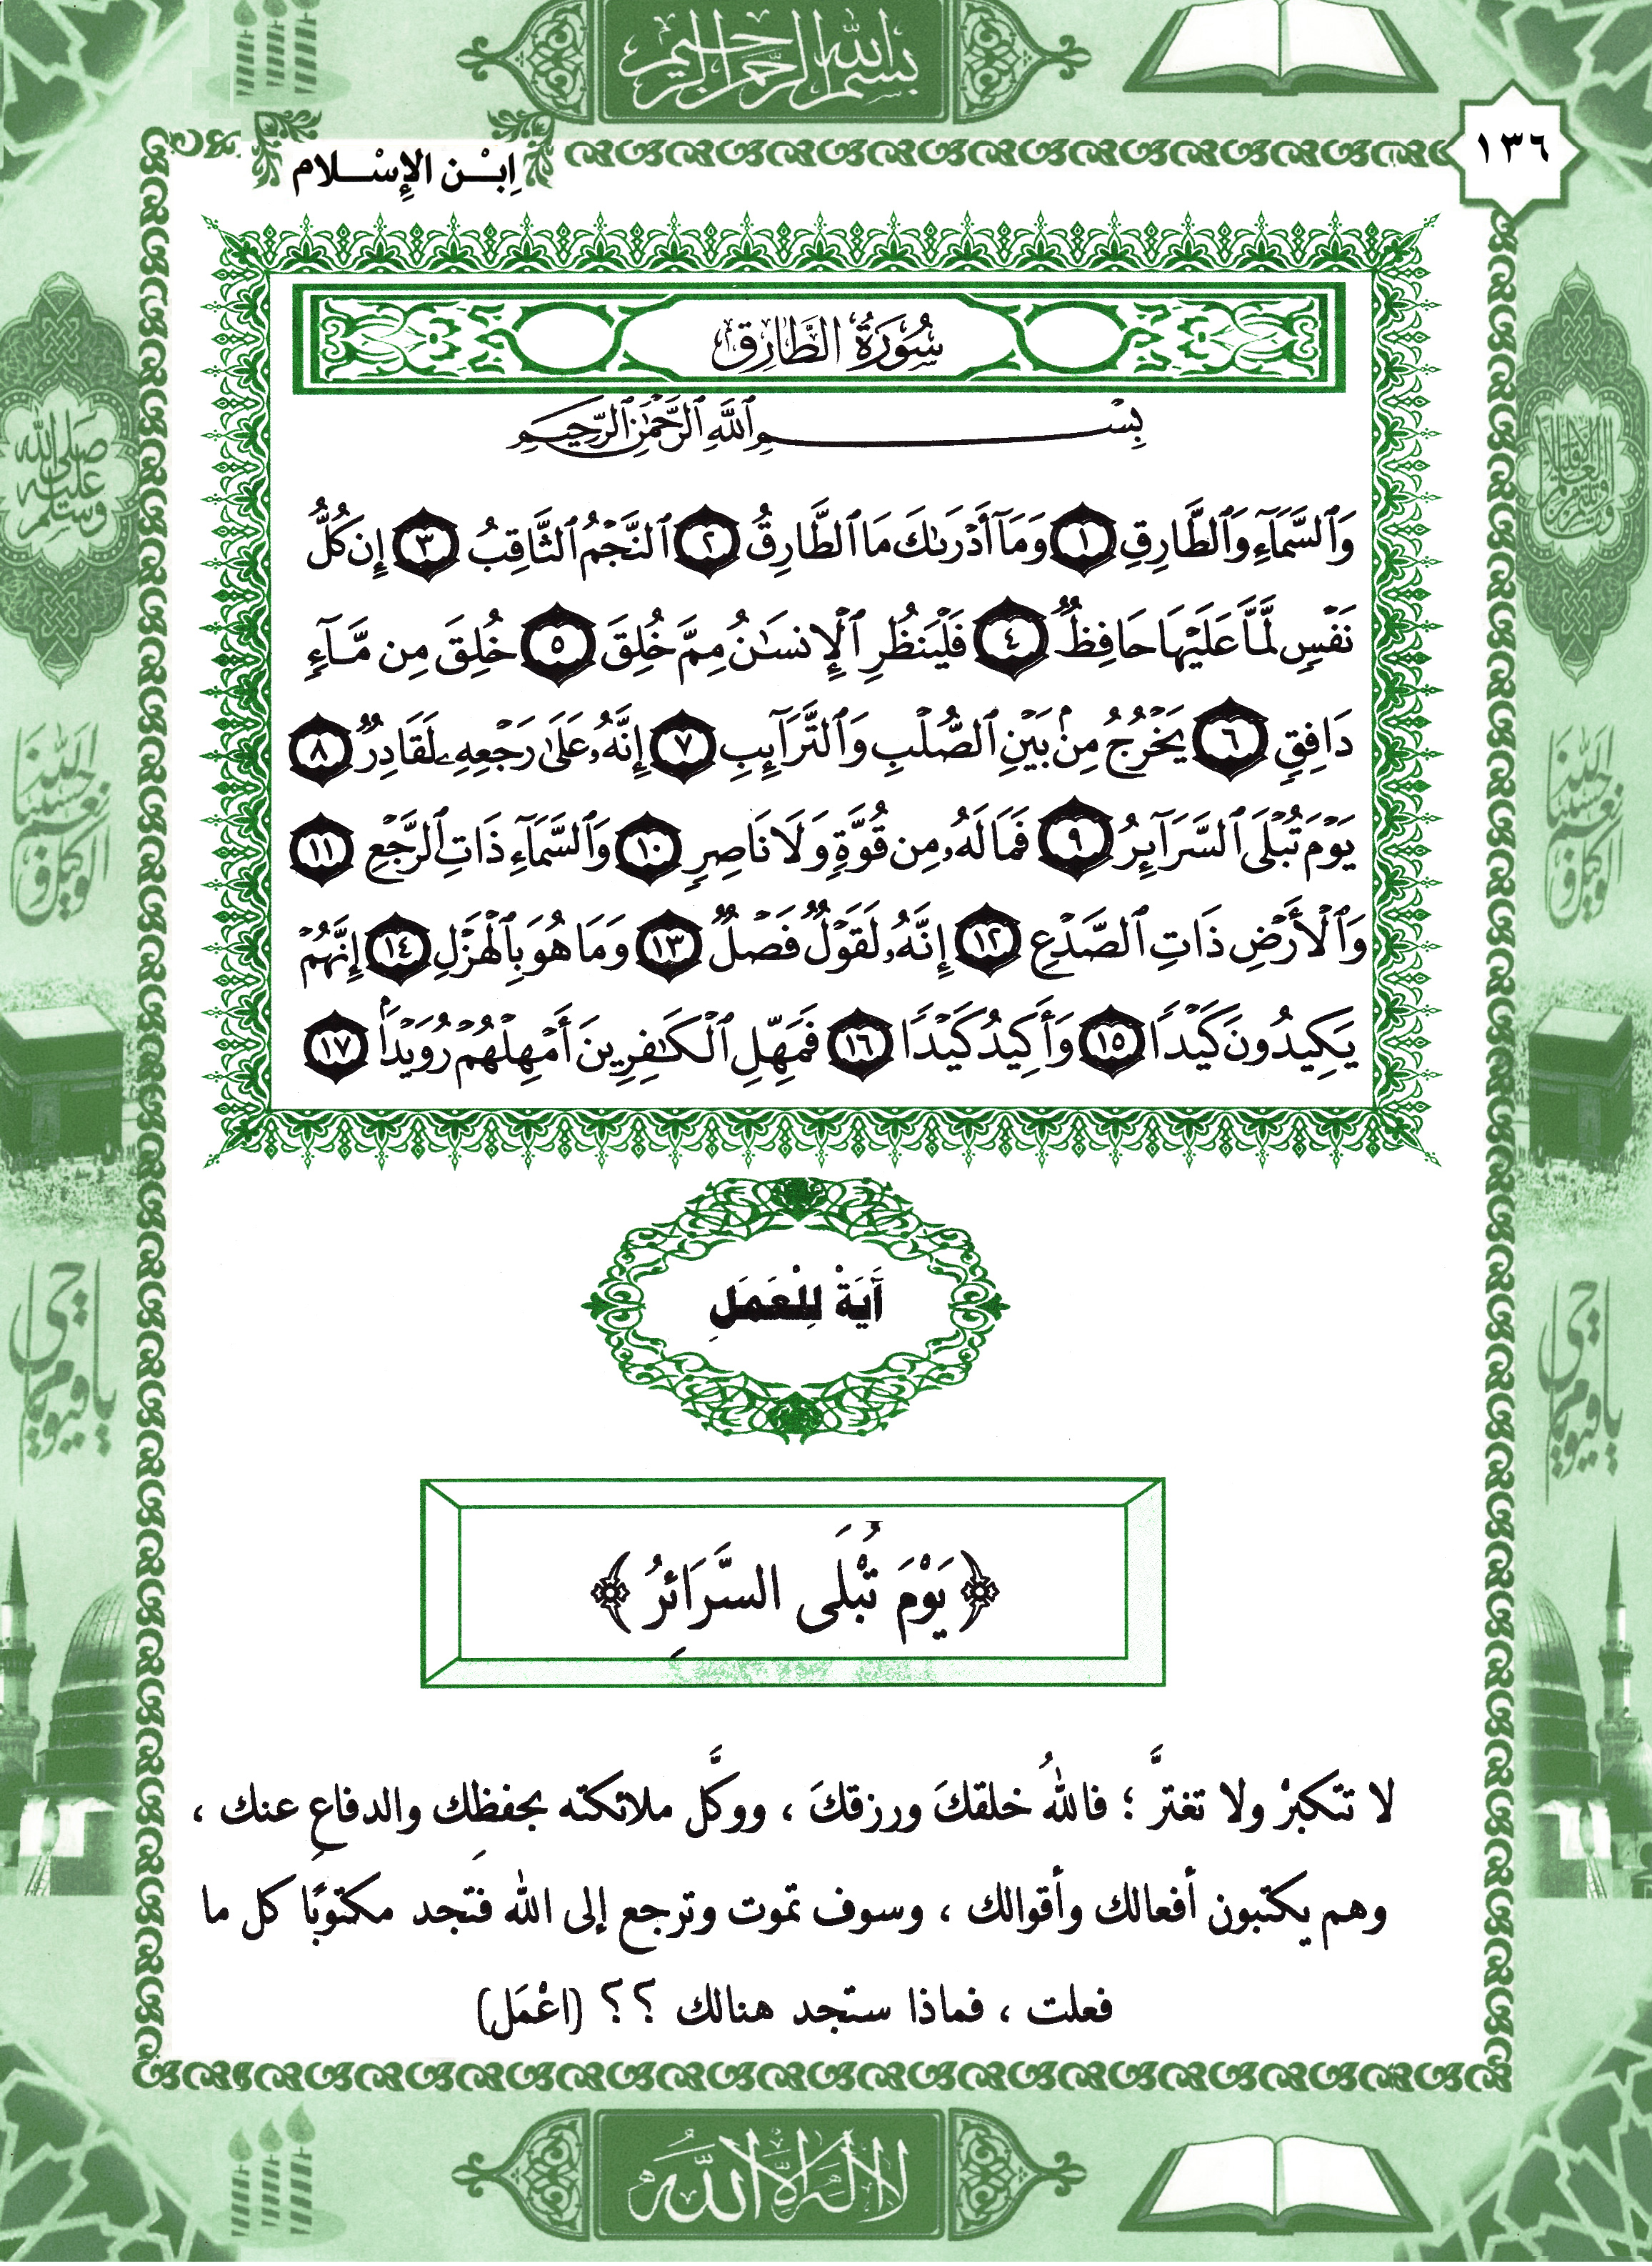 بسم الله الرحمن الرحيم
١٣٦
اِبْـن الإِسْـلام
سُورَةُ الطَّارِق
بِسْمِ ٱللَّهِ ٱلرَّحْمَٰنِ ٱلرَّحِيمِ
وَٱلسَّمَآءِ وَٱلطَّارِقِ ١ وَمَآ أَدْرَىٰكَ مَا ٱلطَّارِقُ ٢ ٱلنَّجْمُ ٱلثَّاقِبُ ٣ إِن كُلُّ
نَفْسٍ لَّمَّا عَلَيْهَا حَافِظٌ ٤ فَلْيَنظُرِ ٱلْإِنسَٰنُ مِمَّ خُلِقَ ٥ خُلِقَ مِن مَّآءٍ
دَافِقٍ ٦ يَخْرُجُ مِنۢ بَيْنِ ٱلصُّلْبِ وَٱلتَّرَآئِبِ ٧ إِنَّهُۥ عَلَىٰ رَجْعِهِۦ لَقَادِرٌ ٨
يَوْمَ تُبْلَى ٱلسَّرَآئِرُ ٩ فَمَا لَهُۥ مِن قُوَّةٍ وَلَا نَاصِرٍ ١٠ وَٱلسَّمَآءِ ذَاتِ ٱلرَّجْعِ ١١
وَٱلْأَرْضِ ذَاتِ ٱلصَّدْعِ ١٢ إِنَّهُۥ لَقَوْلٌ فَصْلٌ ١٣ وَمَا هُوَ بِٱلْهَزْلِ ١٤ إِنَّهُمْ
يَكِيدُونَ كَيْدًا ١٥ وَأَكِيدُ كَيْدًا ١٦ فَمَهِّلِ ٱلْكَٰفِرِينَ أَمْهِلْهُمْ رُوَيْدًۢا ١٧
آيَةْ لِلْعَمَلِ
﴿يَوْمَ تُبْلَى السَّرَائِرُ﴾
لا تتكبرْ ولا تغترَّ ؛ فاللهُ خلقكَ ورزقكَ ، ووكَّل ملائكته بحفظِك والدفاعِ عنك ،
وهم يكتبون أفعالك وأقوالك ، وسوف تموت وترجع إلى الله فتجد مكتوبًا كل ما
فعلت ، فماذا ستجد هنالك ؟؟ (اعْمَل)
لا اله الا الله
صلى الله عليه وسلم
حسبنا الله ونعم الوكيل
يا حي يا قيوم
حسبنا الله ونعم الوكيل
يا حي يا قيوم